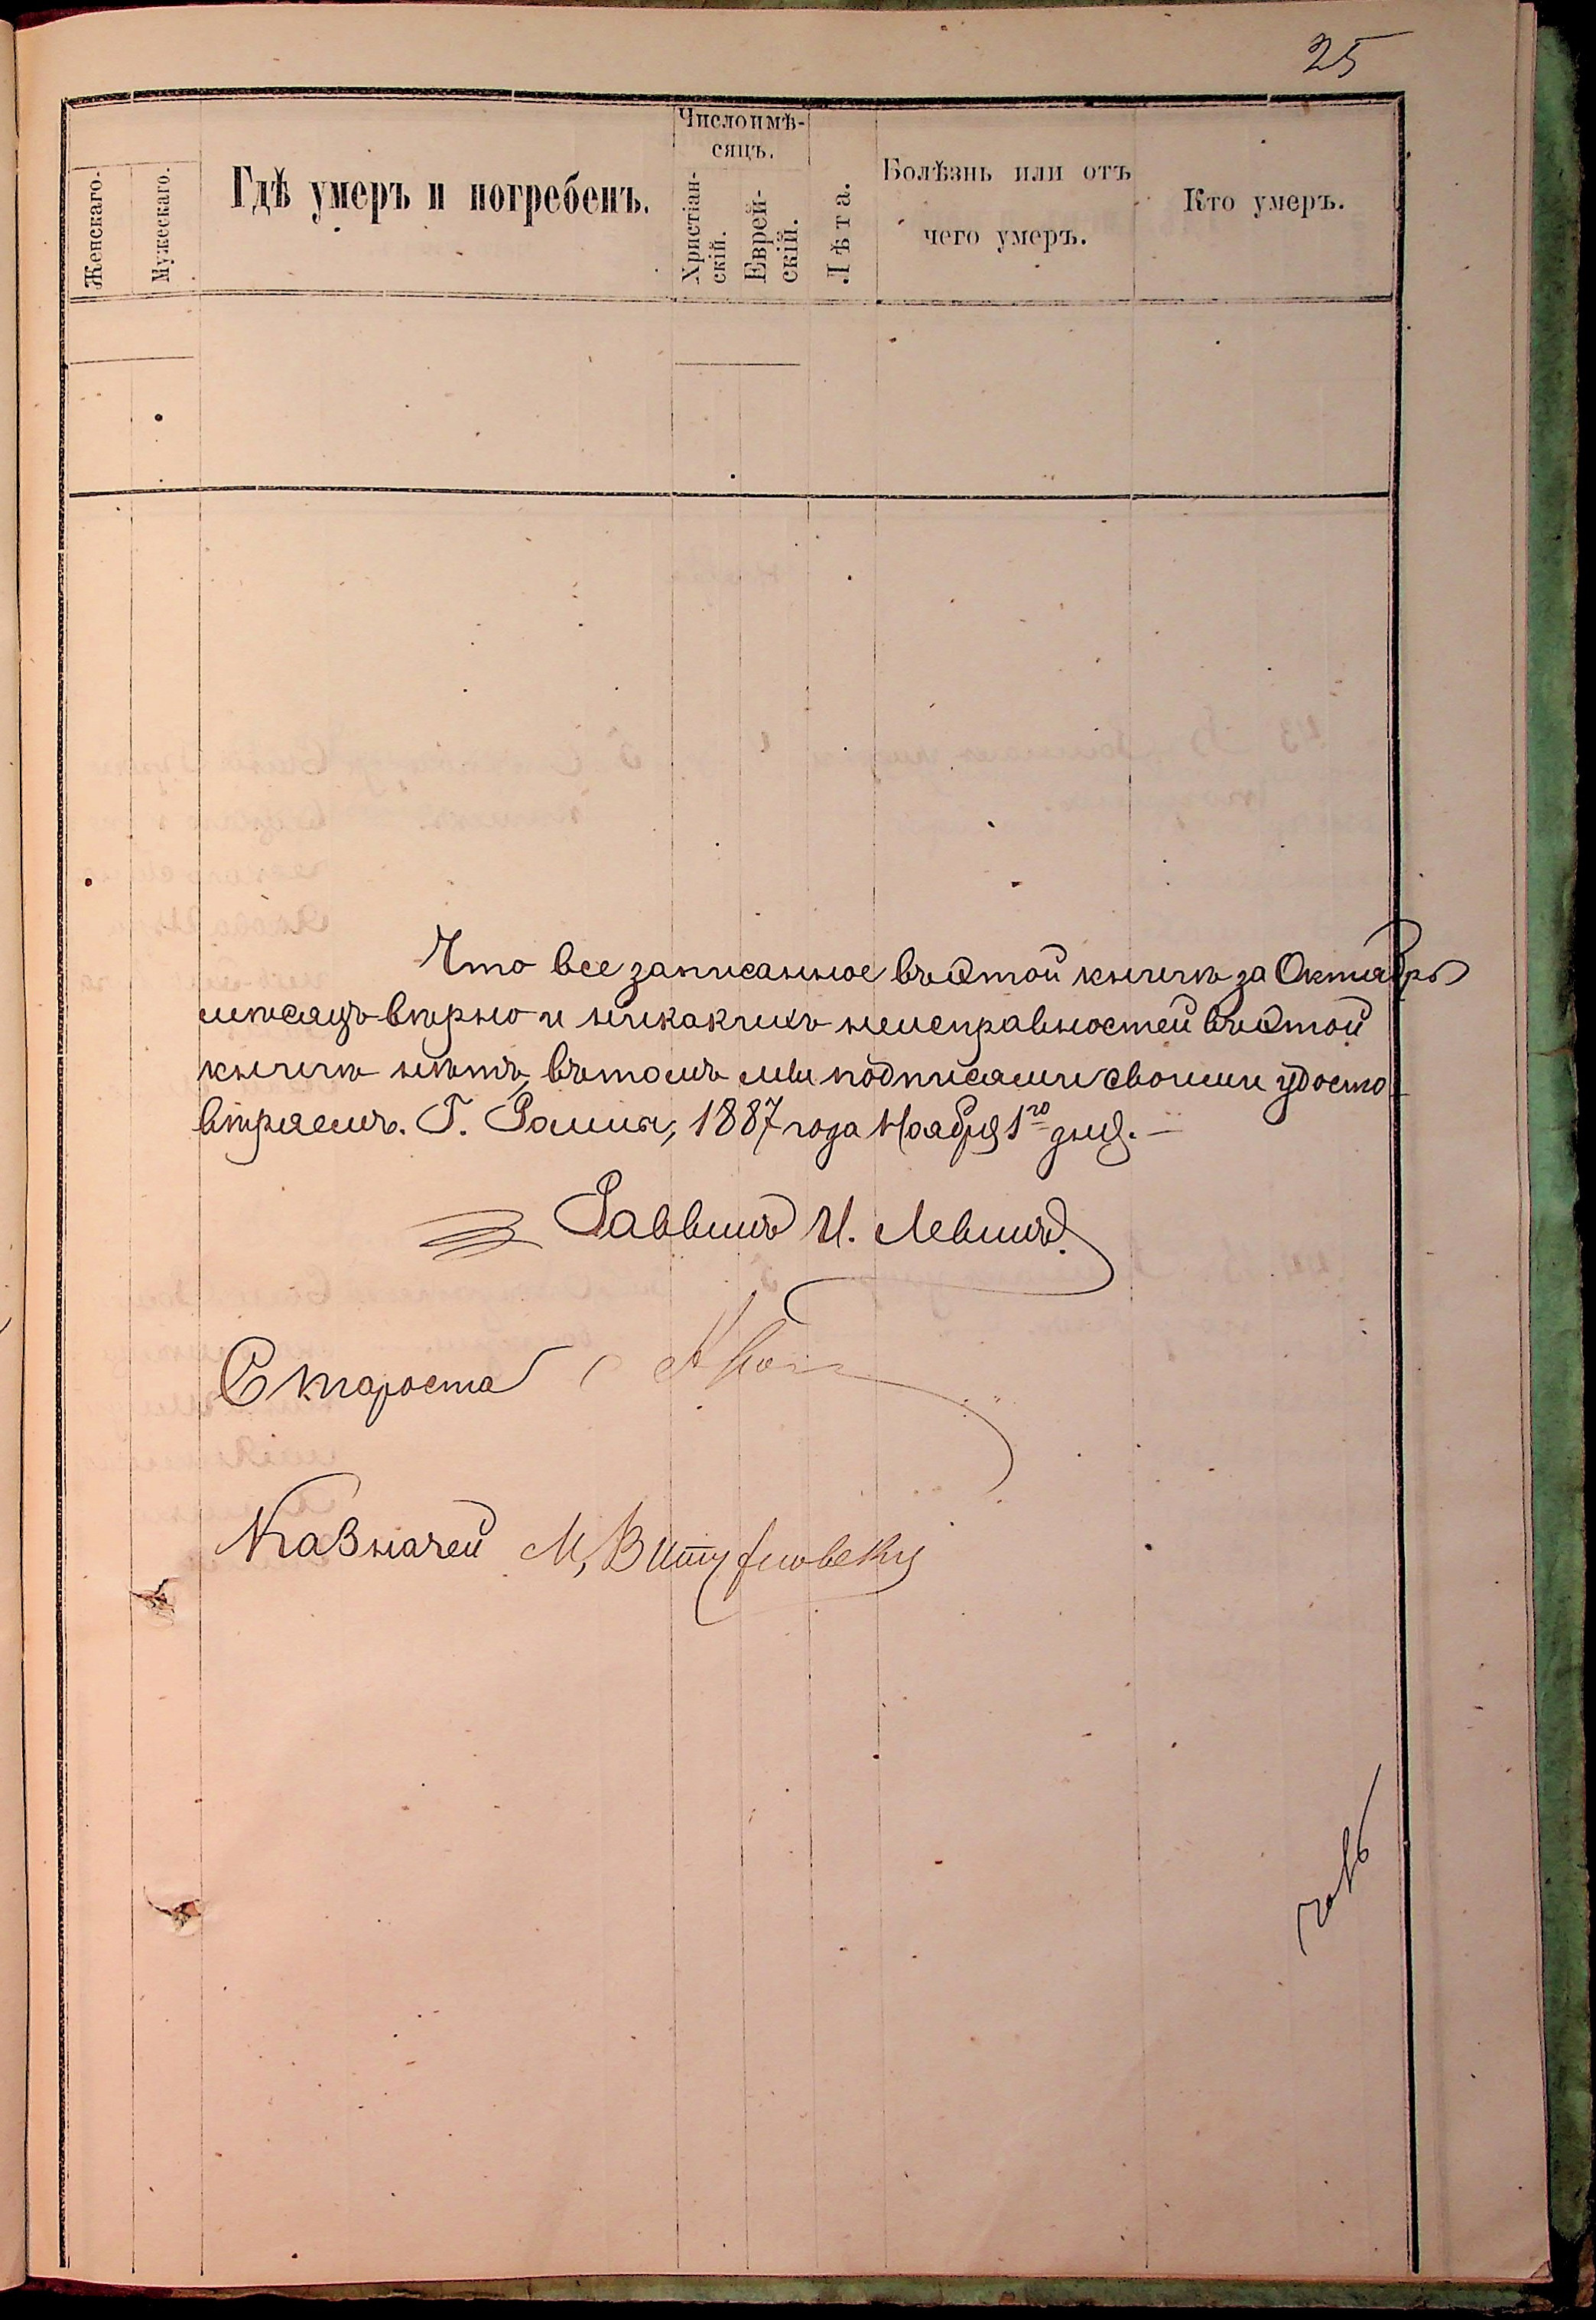 25
Женскаго.
Мужескаго.
Гдѣ умеръ и погребенъ.
Число и мѣ-
сяцъ.
Христіан-
скій.
Еврей-
скій.
Лѣта.
Болѣзнь или отъ
чего умеръ.
Кто умеръ.
Что все записанное въ этой книгѣ за Октябрь
мѣсяцъ вѣрно и никакихъ неисправностей въ этой
книгѣ нѣтъ, въ томъ мы подписами своими удосто-
вѣряемъ. Г. Ромны, 1887 года Ноября 1го дня. —
Раввинъ И. Левинъ.
Староста
Казначей М,